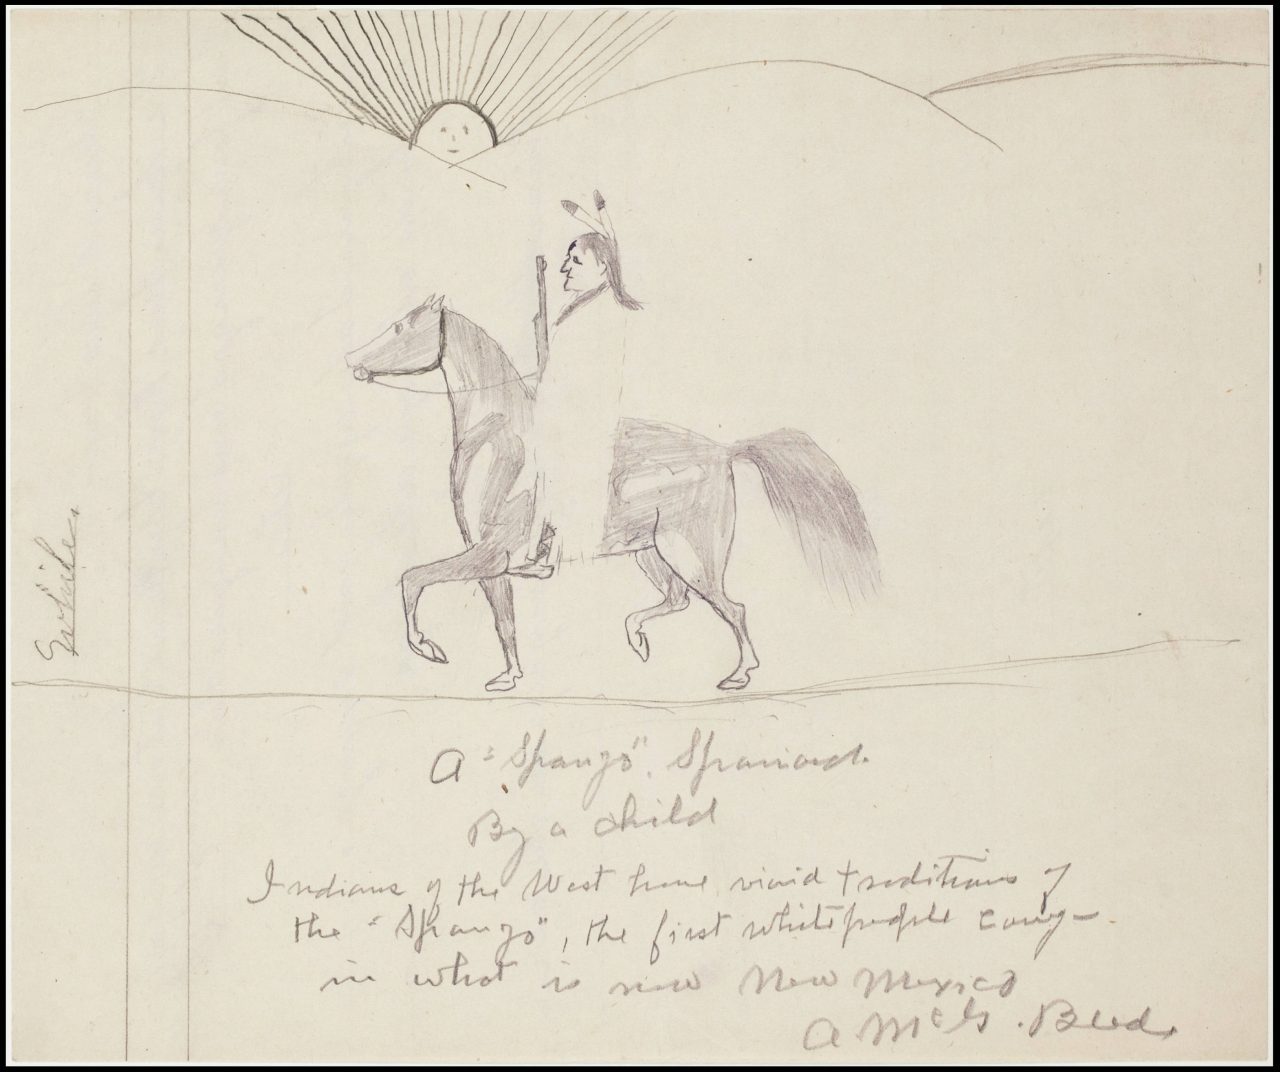 A "Spanyo". Spaniard.
By a child
Indians of the West have vivid traditions of
the "Spanyo", the first white people
in what is now New Mexico
A McG. Beede